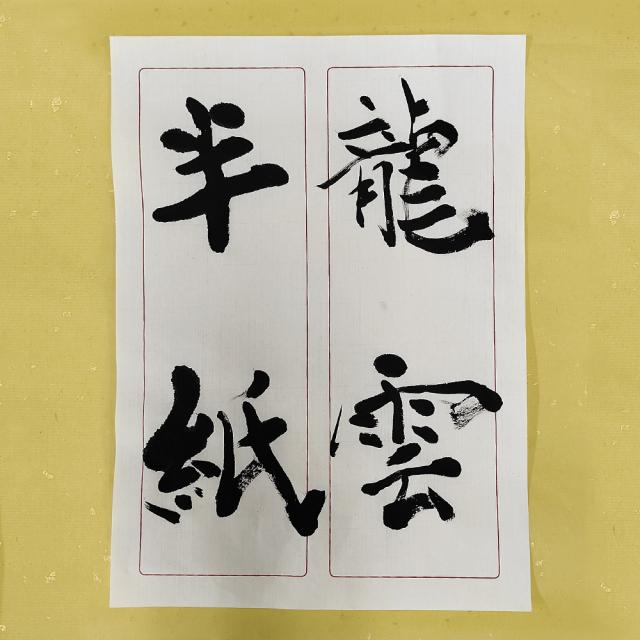 龍雲
半紙